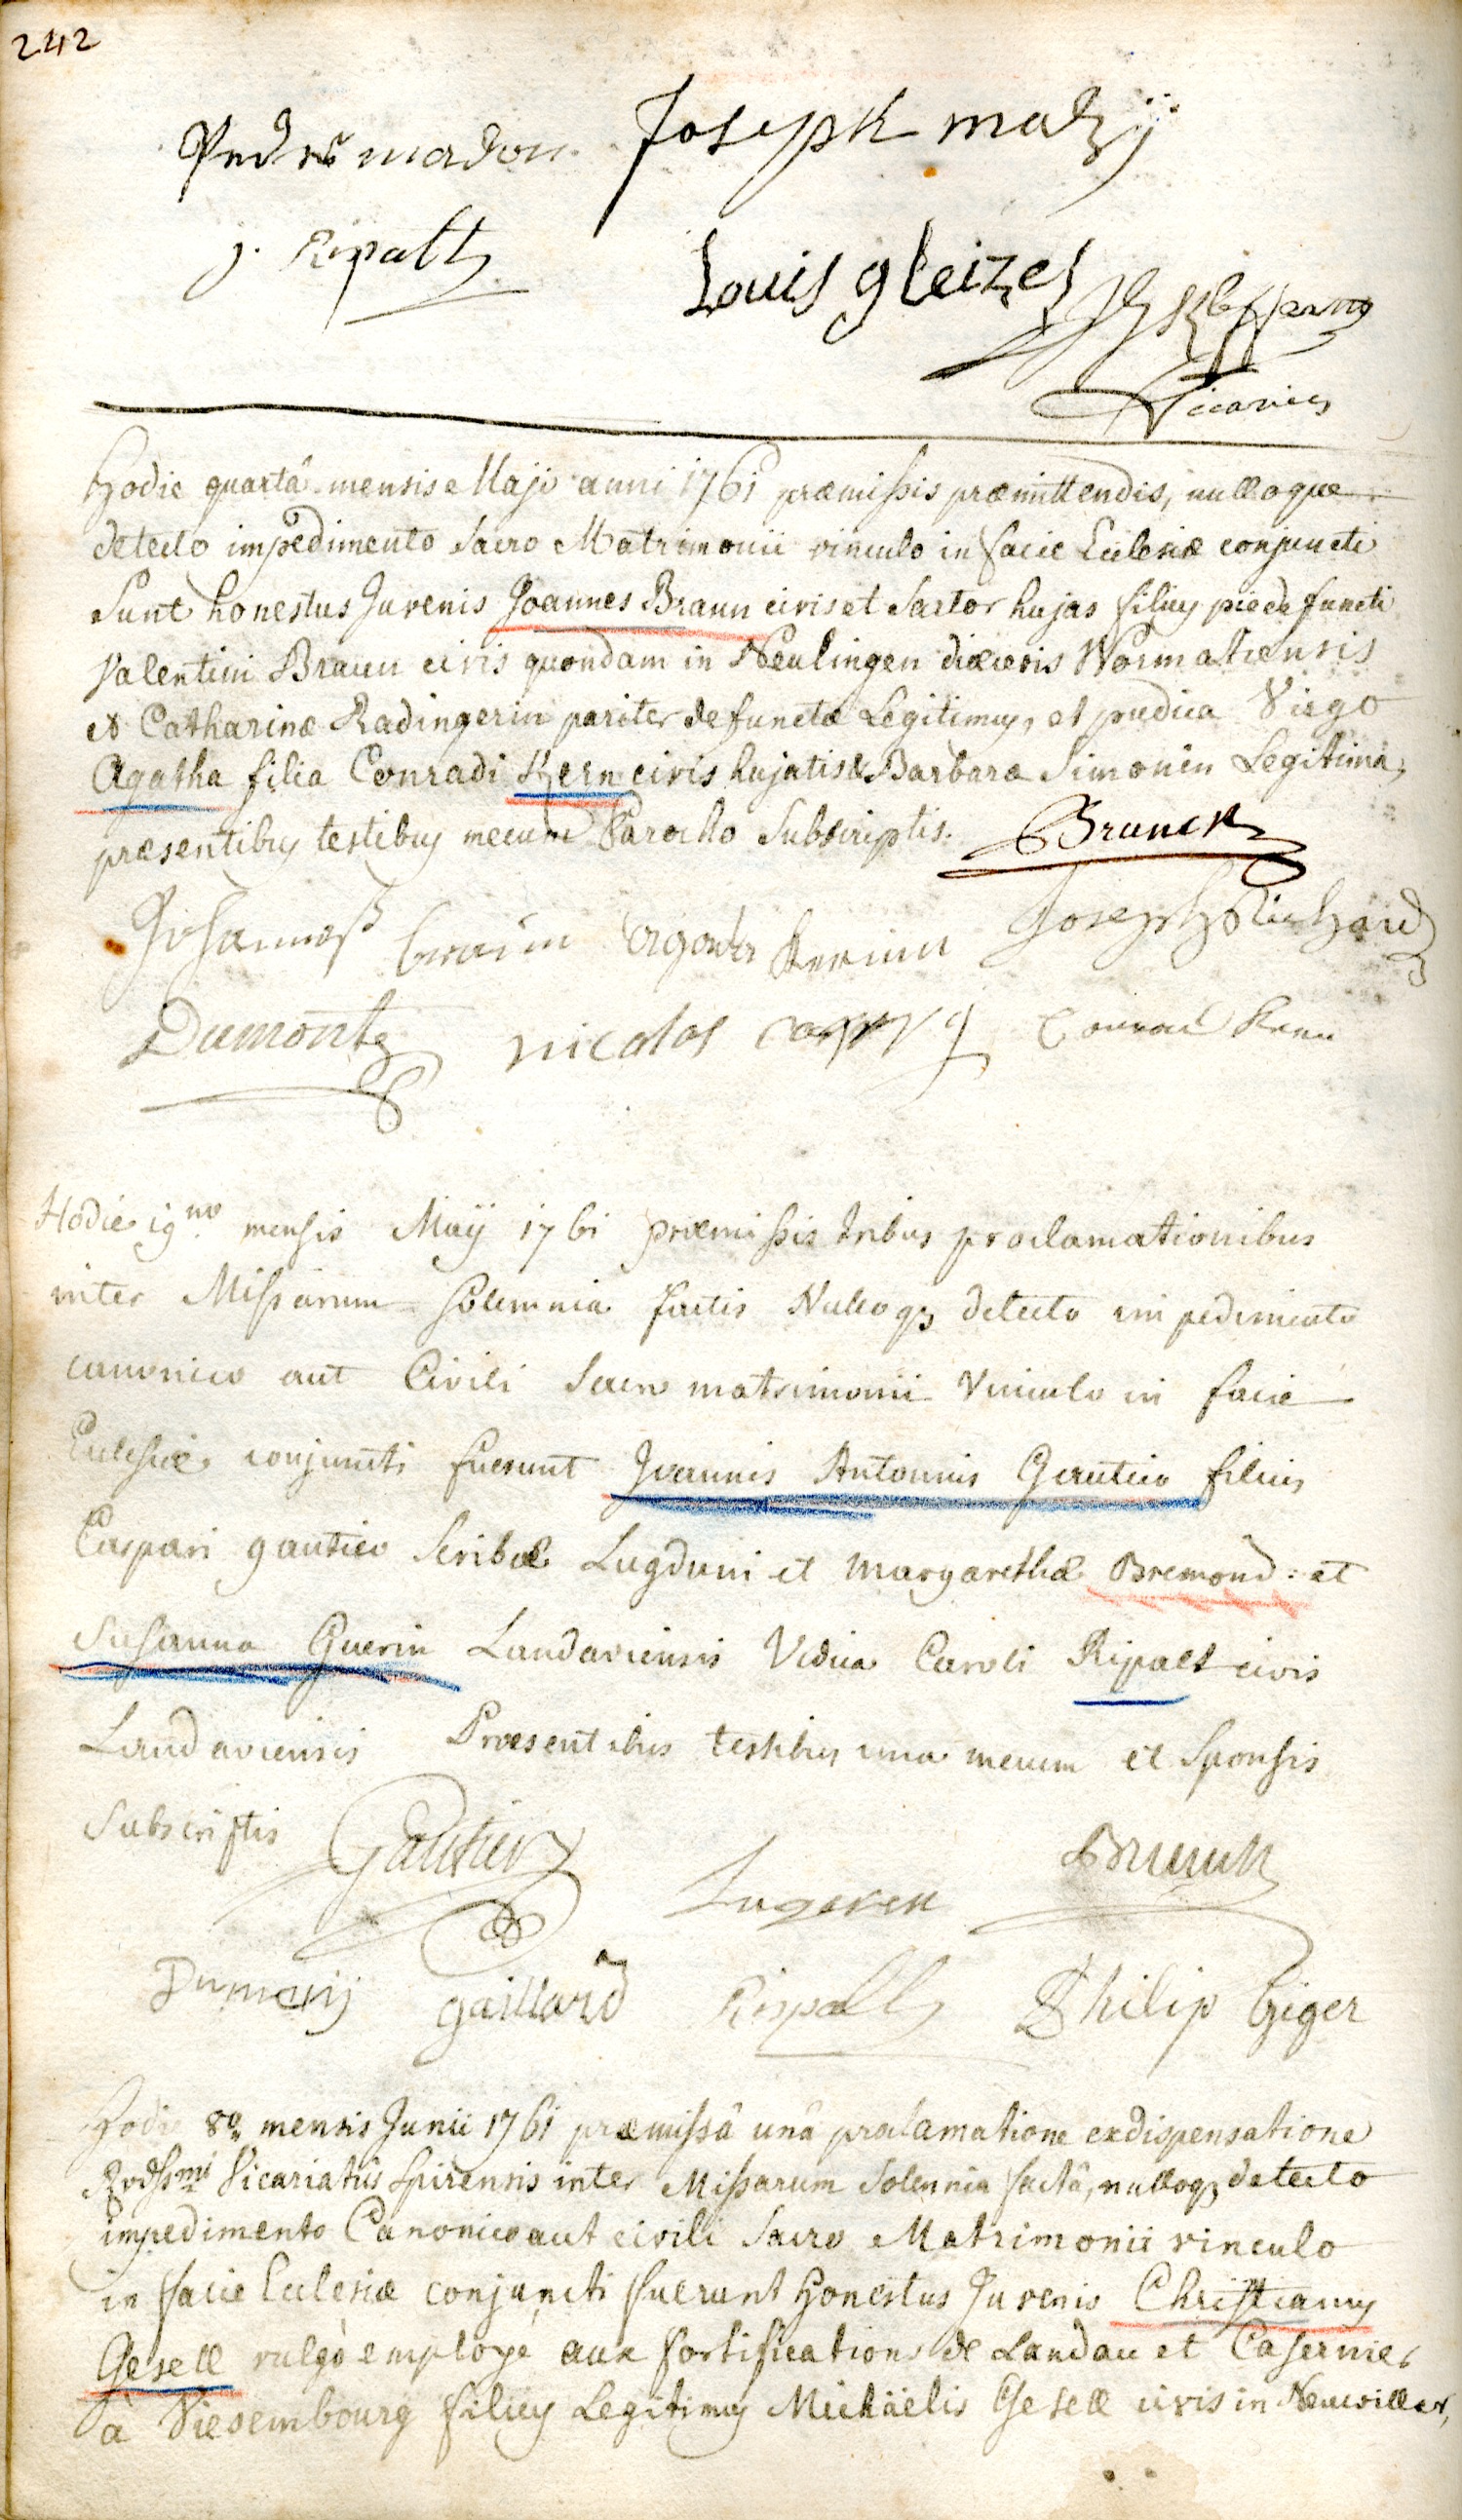 242
Joseph matzij
J. Ripaltz
Louis gleizes
Vicarius
Hodie quarta mensis Maji anni 1761 præmissis præmittendis, nulloque
detecto impedimento Sacro Matrimonii vinculo in facie Ecclesiæ conjuncti
Sunt honestus Juvenis Joannes Braun civis et Sartor hujas filius pie defuncti
Valentini Braun civis quondam in Neulingen diœcesis Wormatiensis
et Catharinæ Radingerin pariter defunctæ Legitimus, et pudica Virgo
Agatha filia Conradi Kern civis hujatis & Barbara Simonin Legitima,
præsentibus testibus mecum Parocho Subscriptis. Brunck
Johannes braun agatha Kernin Joseph Richard
Dumont nicolas Conrad Kern
Hodie 19no mensis Maÿ 1761 præmissis tribus proclamationibus
inter Missarum Solemnia factis Nulloqz detecto impedimento
canonico aut Civili Sacro matrimonii Vinculo in facie
Ecclesiæ conjuncti fuerunt Joannis Antonius Gautier filius
Caspari gautier Scribæ Lugduni et Margarethæ Bremond: et
Susanna Guerin Landaviensis Vidua Caroli Ripalt civis
Landaviensis Præsentibus testibus una mecum et Sponsis
Subscriptis Gautier Brunck
gaillard Ripalt Philip Geiger
Hodie 8va mensis Junii 1761 præmissâ unâ proclamatione ex dispensatione
Rvdssmi Vicariatûs Spirensis inter Missarum Solennia factâ, nulloqz detecto
impedimento Canonico aut civili Sacro Matrimonii vinculo
in facie Ecclesiæ conjuncti fuerunt honestus Juvenis Christianus
Gesell vulgò employe aux fortifications de Landau et Casernier
à Viesembourg filius Legitimus Michäelis Gesell civis in Neuwiller,